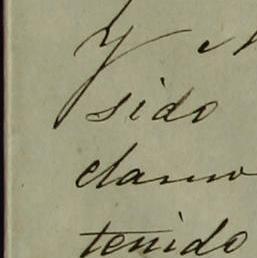 Y
sido
clamo
tenido